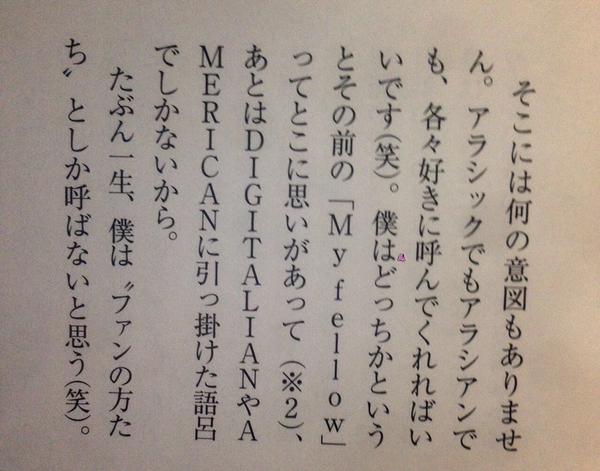 そこには何の意図もありませ
ん。アラシックでもアラシアンで
も、各々好きに呼んでくれればい
いです(笑)。僕はどっちかという
とその前の「My fellow」
ってとこに思いがあって(※2)、
あとはDIGITALIANやA
MERICANに引っ掛けた語呂
でしかないから。
たぶん一生、僕は〝ファンの方た
ち〟としか呼ばないと思う(笑)。